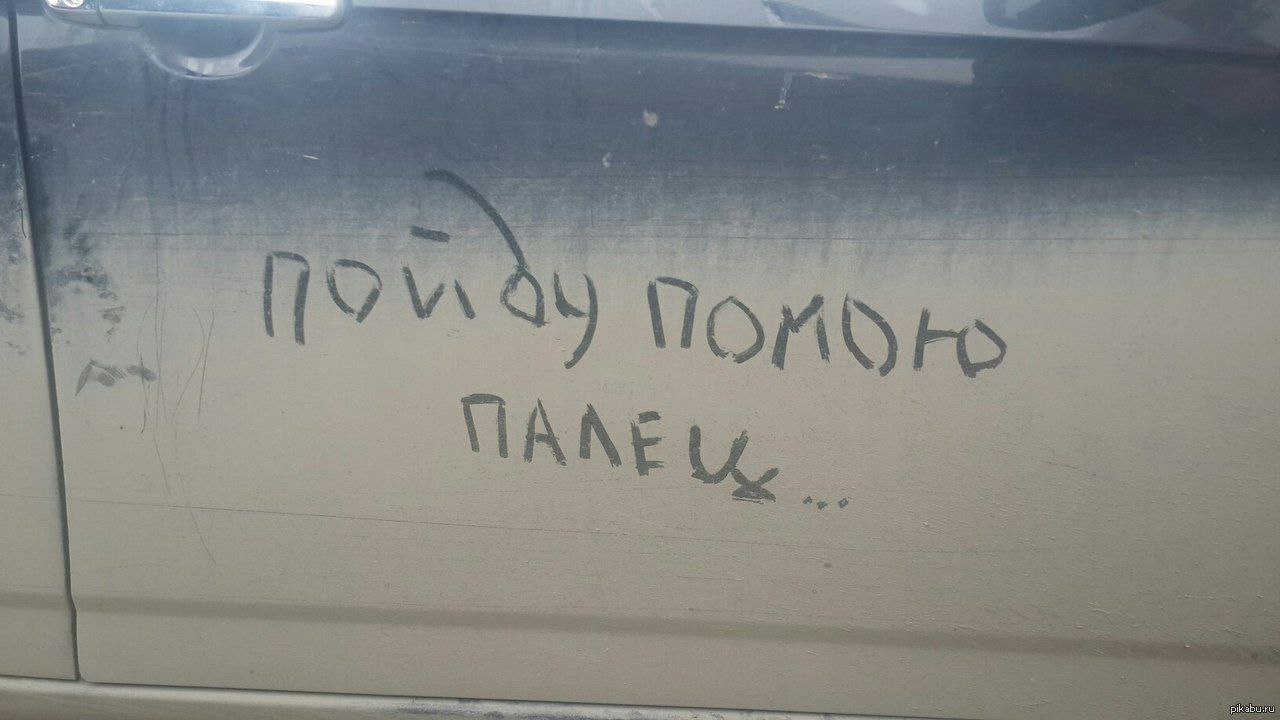 пойду помою
ПАЛЕЦ...
pikabu.ru